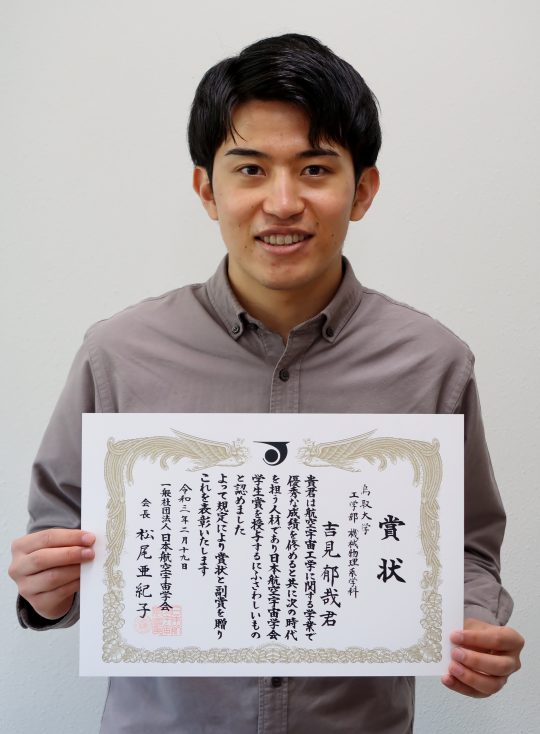 賞状
鳥取大学
工学部 機械物理系学科
吉見郁哉君
貴君は航空宇宙工学に関する学業で
優秀な成績を修めると共に次の時代
を担う人材であり日本航空宇宙学会
学生賞を授与するにふさわしいもの
と認めました
よって規定により賞状と副賞を贈り
これを表彰いたします
令和三年二月十九日
一般社団法人日本航空宇宙学会
会長 松尾亜紀子